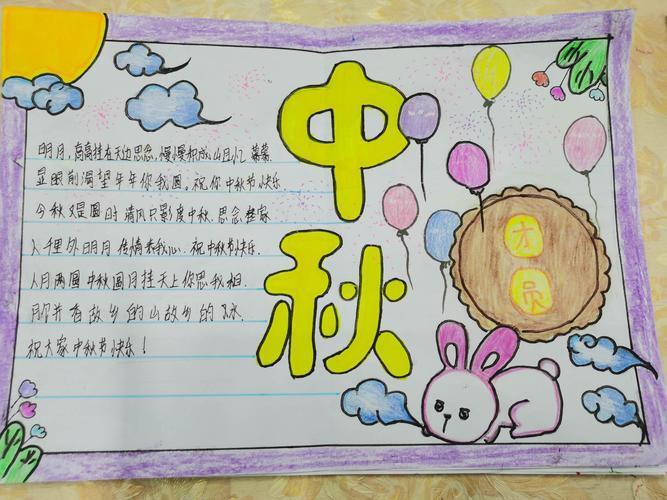 明月,高高挂在天边思念,慢慢积成山回忆,幕幕
显眼前渴望年年你我圆,祝你中秋节快乐
今秋又是圆时清风只影度中秋.思念
人千里外明月传情表我心.祝中秋节快乐.
人月两圆中秋圆月挂天上你思我相
故乡的山故乡的水.
祝大家中秋节快乐!
中秋